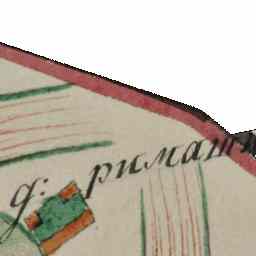 д: римаши